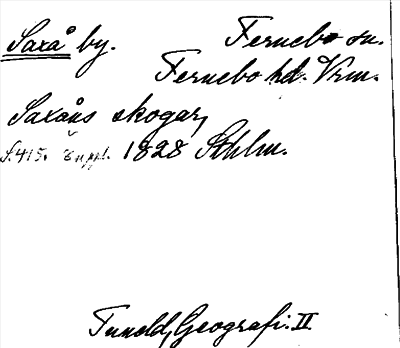 Saxå by. Fernebo sn.
Fernebo hd. Vrm.
Saxåns skogar,
S. 415. 8 uppl. 1828 Sthlm.
Tuneld, Geografi. II